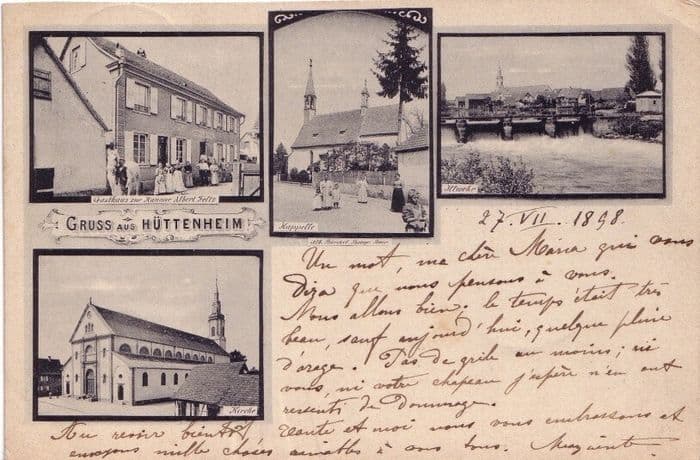 Gasthaus zur Kanone Albert Feltz
Kappelle
Illwehr
GRUSS AUS HÜTTENHEIM
Kirche
27. VII. 1898.
Un mot, ma chère Maria qui vous
dira que nous pensons à vous.
Nous allons bien. le temps était très
beau, sauf aujourd'hui, quelque pluie
d'orage. Pas de grêle au moins; ni
vous, ni votre chapeau j'espère n'en ont
ressenti de Dommage.
Tante et moi nous vous embrassons et
Au revoir bientôt,
envoyons mille choses aimables à vous tous.